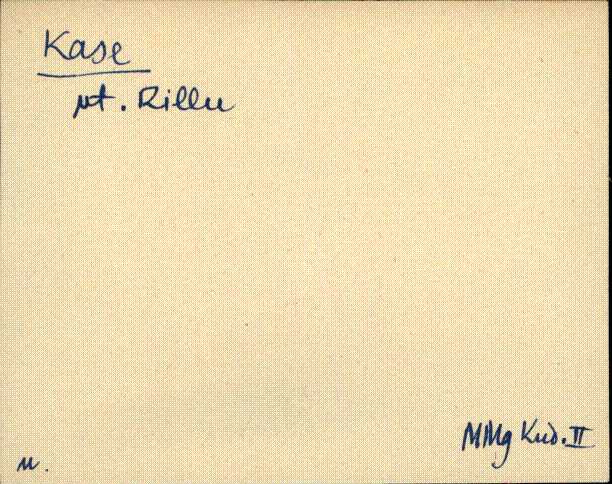 Kase
vt. Rillu
MMg Kud. II
м.